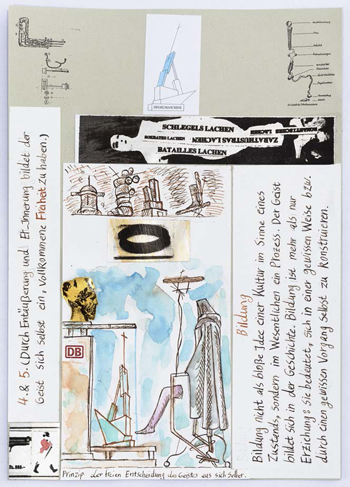 SCHLEGELS LACHEN
SOKRATES LACHEN
ZARATHUSTRAS LACHEN
BATAILLES LACHEN
4. & 5. (Durch Entäußerung und Er-innerung bildet der
Geist sich selbst ein, vollkommene Freiheit zu haben.)
DB
Prinzip der freien Entscheidung des Geistes aus sich selber.
Bildung
Bildung nicht als bloße Idee einer Kultur im Sinne eines
Zustands, sondern im Wesentlichen ein Prozess. Der Geist
bildet sich in der Geschichte. Bildung ist mehr als nur
Erziehung: sie bedeutet, sich in einer gewissen Weise bzw.
durch einen gewissen Vorgang selbst zu konstruieren.